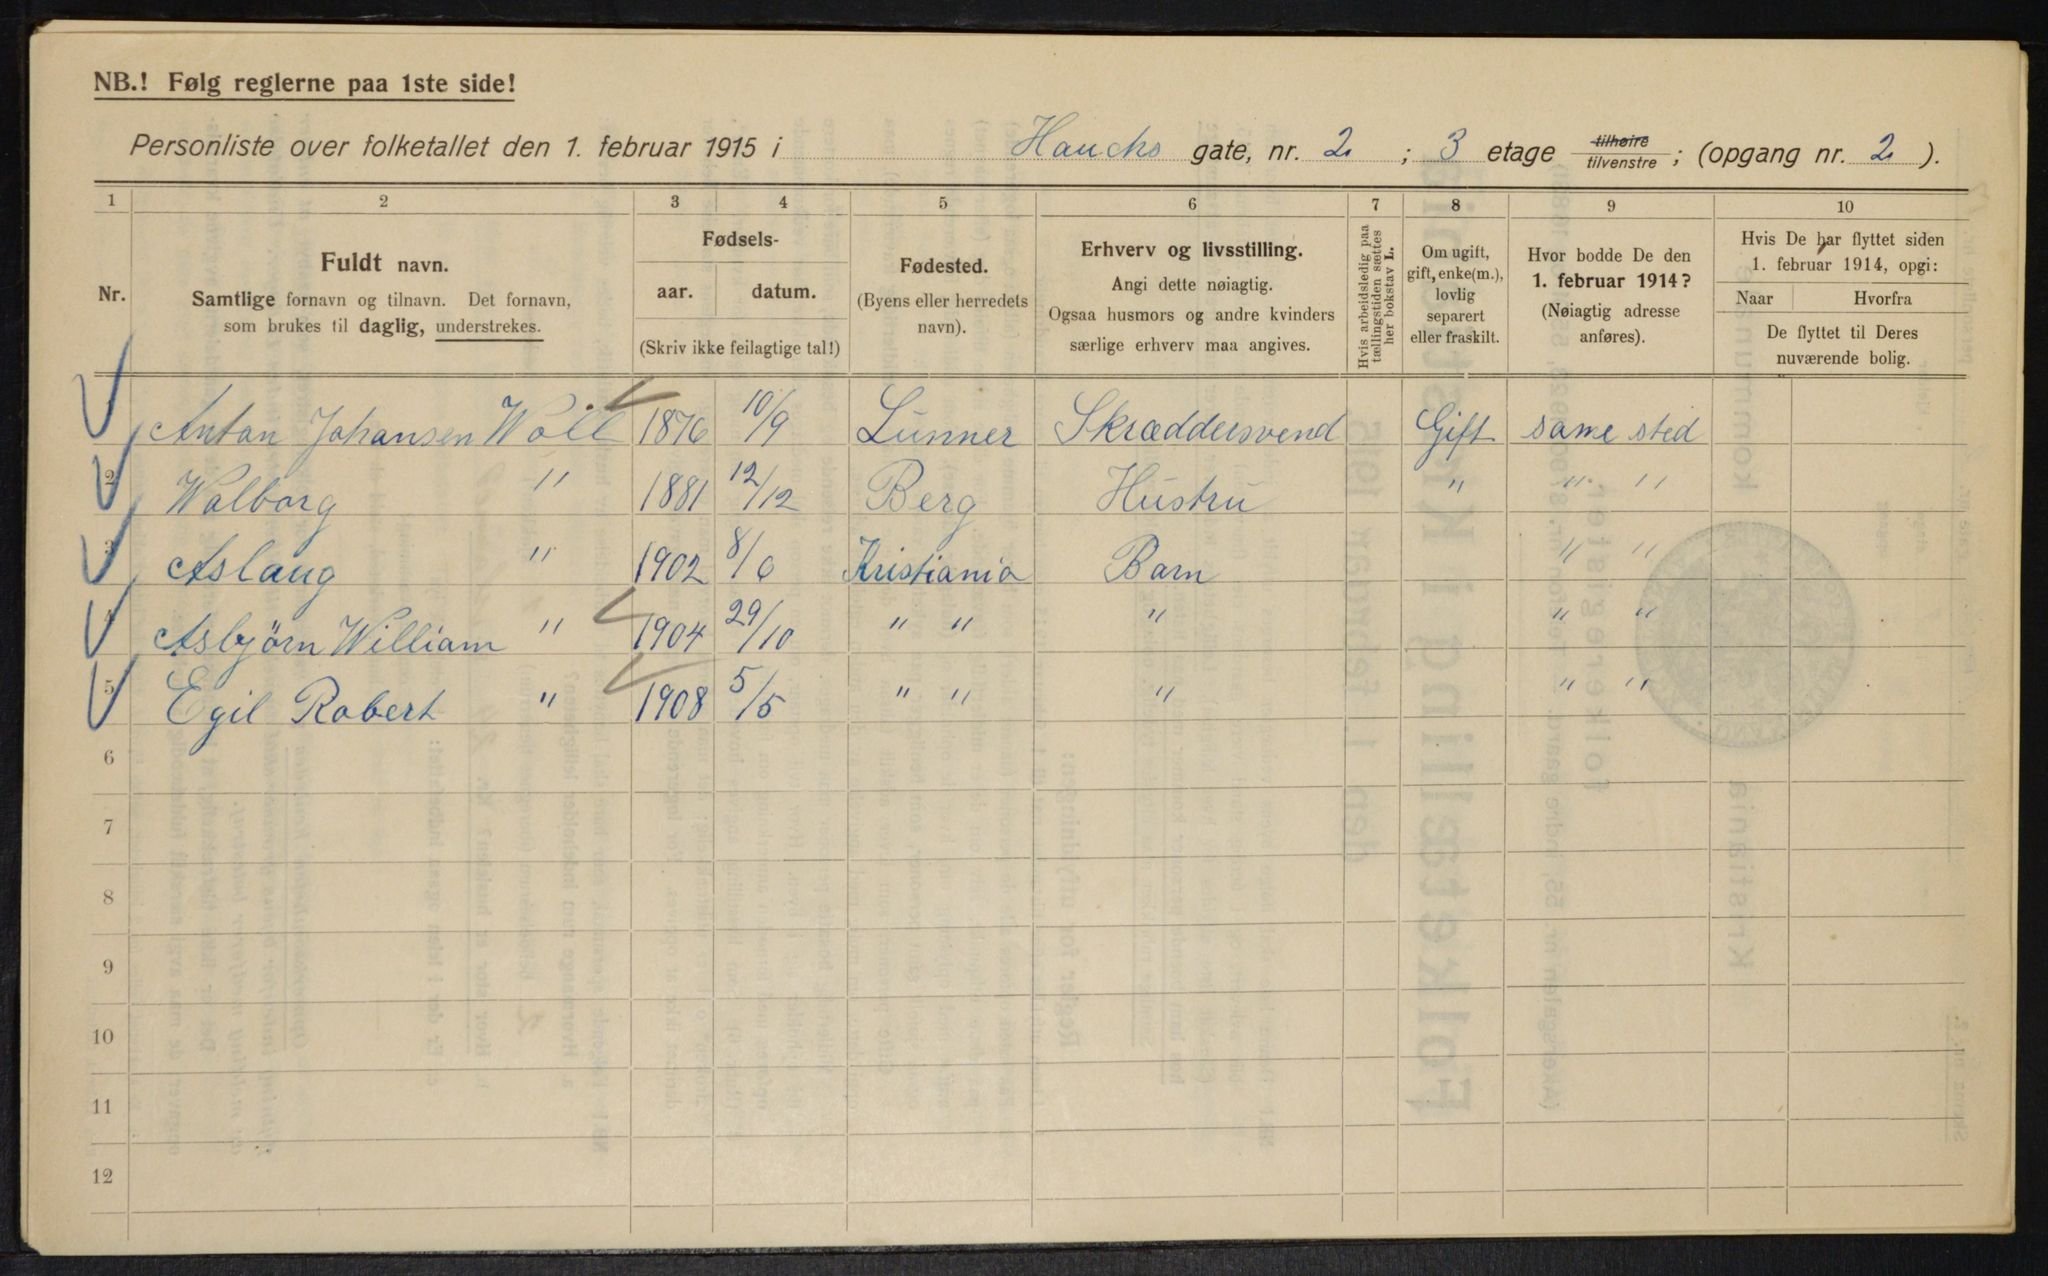 NB.! Følg reglerne paa 1ste side!
Personliste over folketallet den 1. februar 1915 i Haucks gate, nr. 2 ; 3 etage tilhøire/tilvenstre ; (opgang nr. 2 ).
1 2 3 4 5 6 7 8 9 10
Nr.
Fuldt navn.
Samtlige fornavn og tilnavn. Det fornavn,
som brukes til daglig, understrekes.
Fødsels-
aar. datum.
(Skriv ikke feilagtige tal!)
Fødested.
(Byens eller herredets
navn).
Erhverv og livsstilling.
Angi dette nøiagtig.
Ogsaa husmors og andre kvinders
særlige erhverv maa angives.
Hvis arbeidsledig paa
tællingstiden sættes
her bokstav L.
Om ugift,
gift, enke(m.),
lovlig
separert
eller fraskilt.
Hvor bodde De den
1. februar 1914?
(Nøiagtig adresse
anføres).
Hvis De har flyttet siden
1. februar 1914, opgi:
Naar Hvorfra
De flyttet til Deres
nuværende bolig.
Anton Johansen Woll 1876 10/9 Lunner Skræddersvend Gift same sted
2 Walborg " 1881 12/12 Berg Hustru " " "
3 Aslaug " 1902 8/6 Kristiania Barn " "
4 Asbjørn William " 1904 29/10 " " " " "
5 Egil Robert " 1908 5/5 " " " " "
6
7
8
9
10
11
12